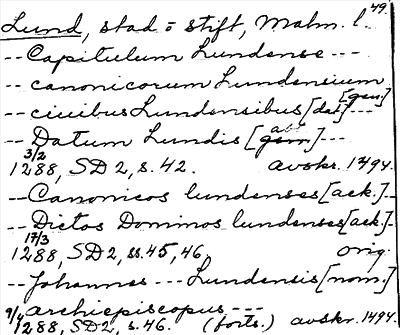 49.
Lund, stad o stift, Malm. l.
-- Capitulum Lundense ---
-- canonicorum Lundensium [gen]
-- ciuibus Lundensibus [dat] ---
-- Datum Lundis [gen abl] ---
3/2
1288, SD 2, s. 42. avskr. 1494.
-- Canonicos lundenses [ack.] --
-- Dictos Dominos lundenses [ack.] --
17/3
1288, SD 2, ss. 45, 46. orig.
-- Johannes --- Lundensis [nom.]
archiepiscopus ---
9/4
1288, SD 2, s. 46. (forts.) avskr. 1494.